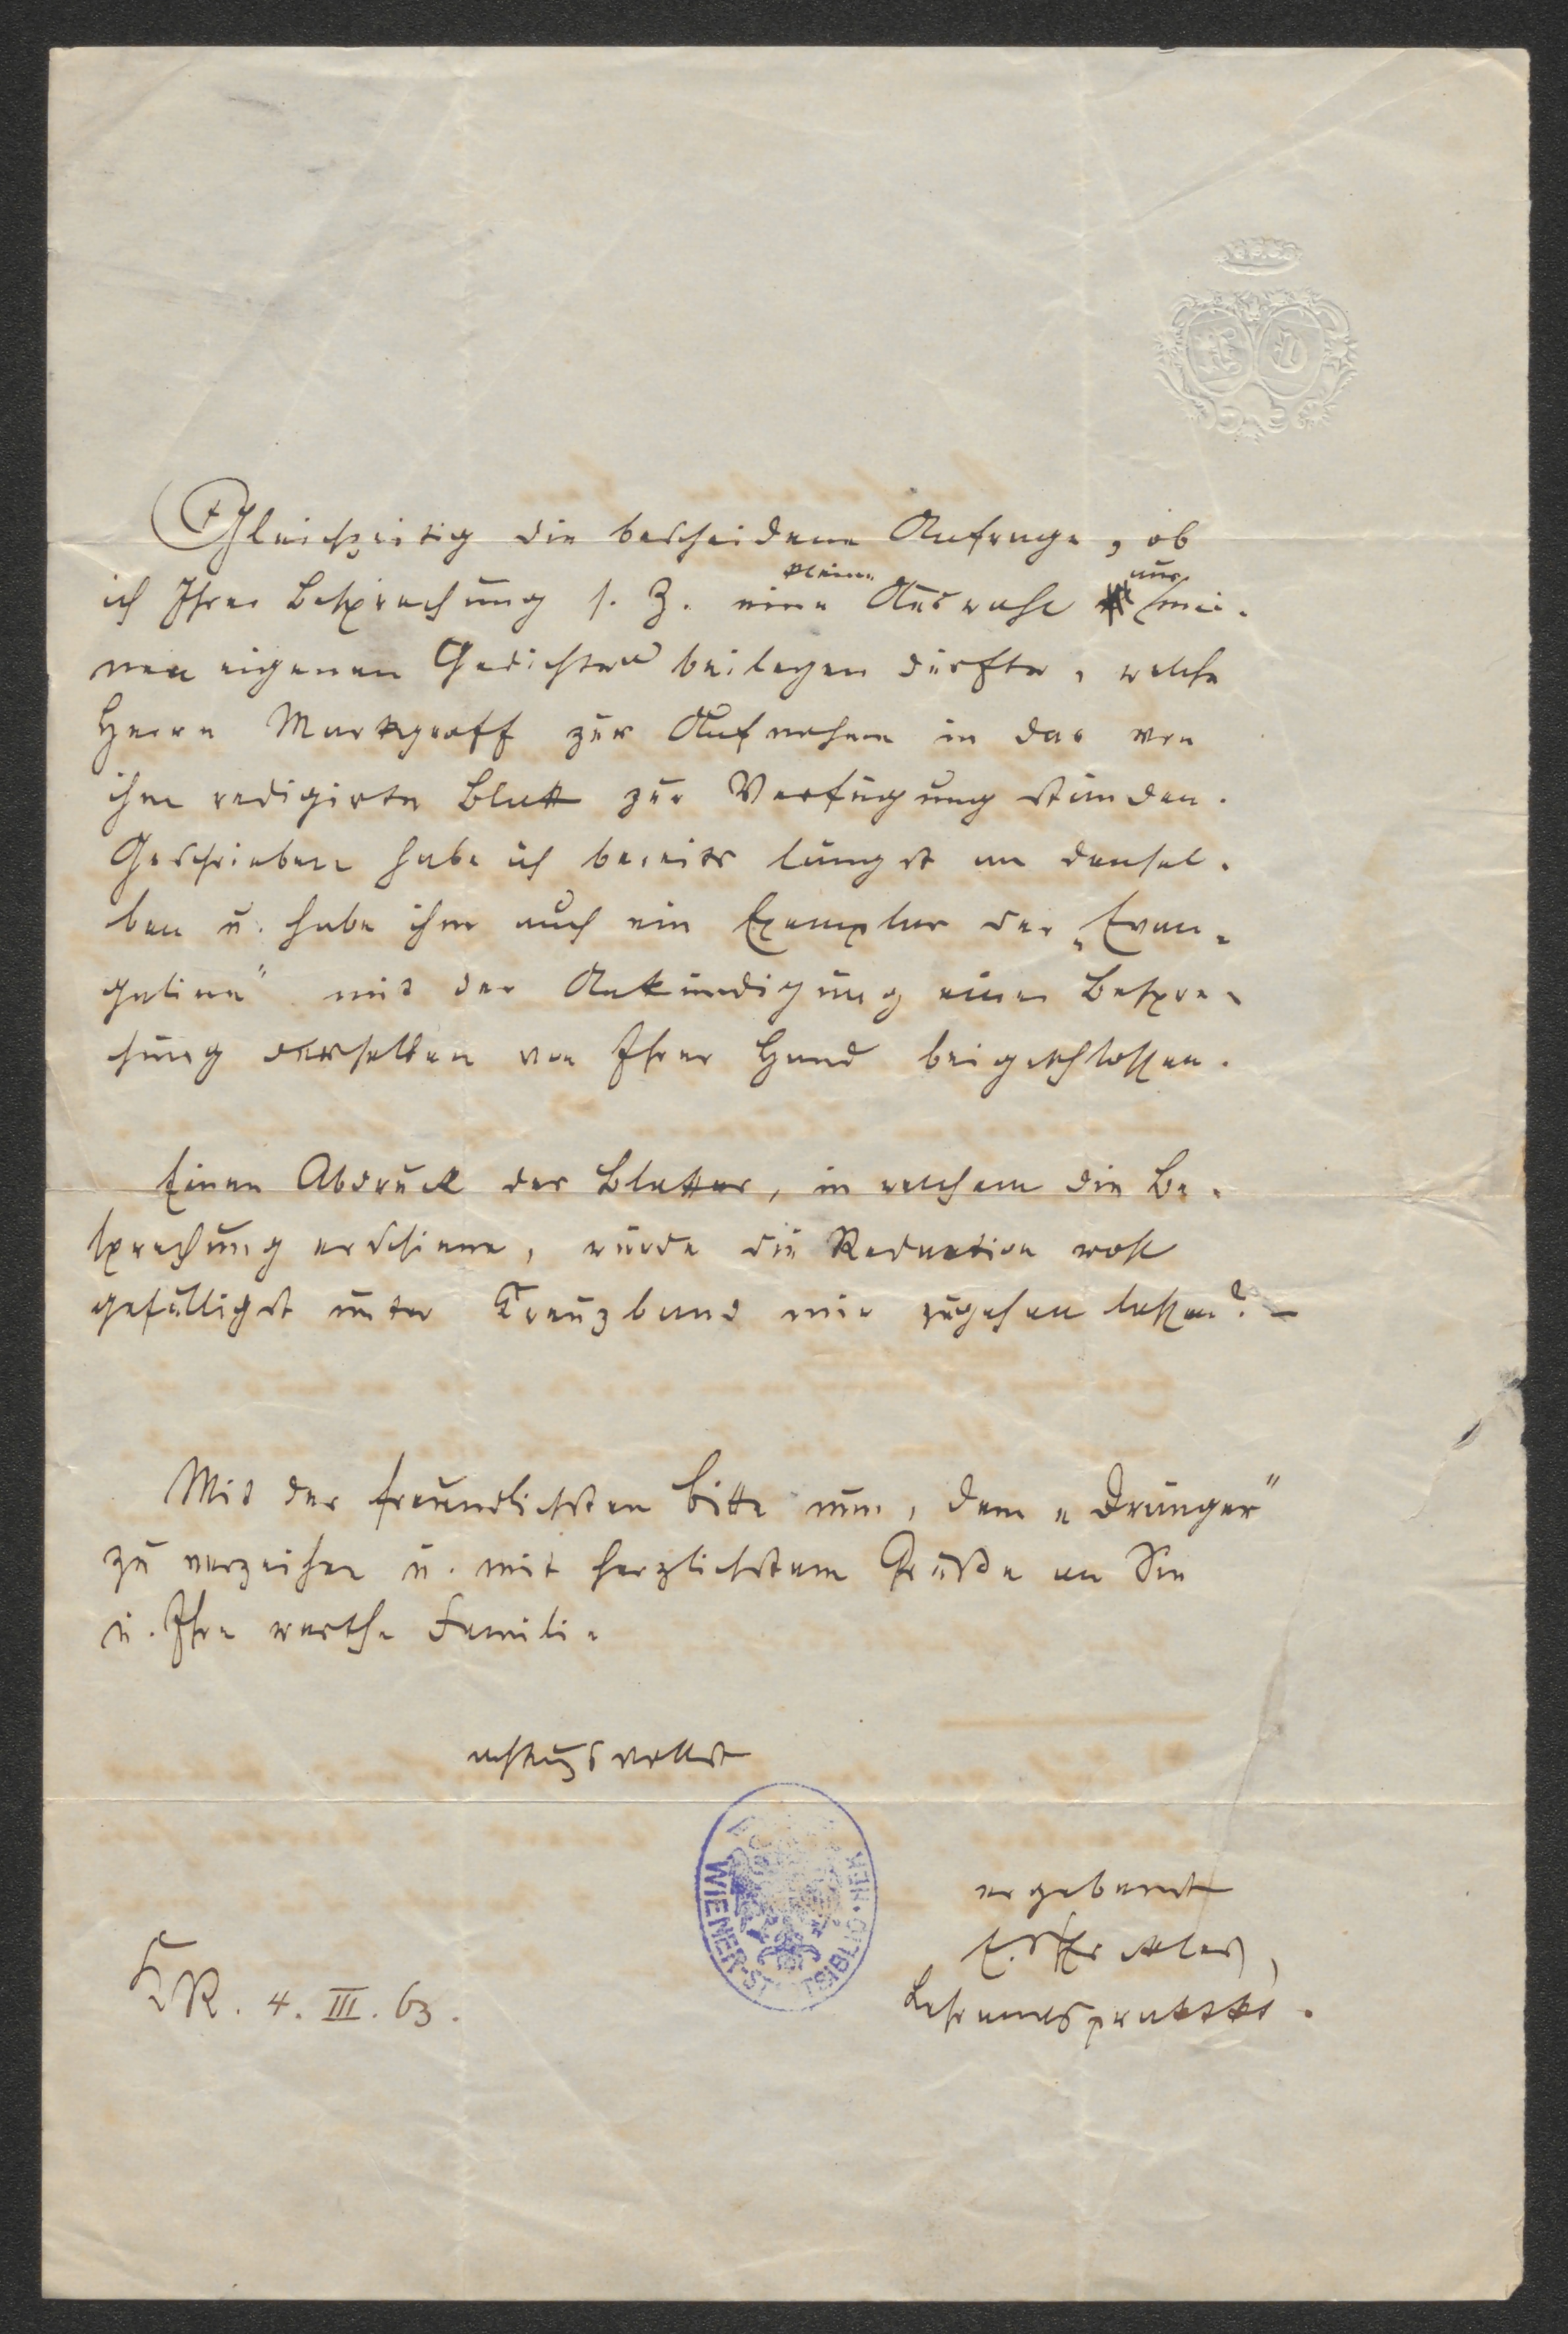 Gleichzeitig die bescheidene Anfrage, ob
ich Ihrer Besprechung s. Z. eine kleine Auswahl aus mei-
nen eigenen Gedichten beilegen dürfte, welche
Herrn Markgraff zur Aufnahme in das von
ihm redigirte Blatt zur Verfügung stünden.
Geschrieben habe ich bereits längst an densel-
ben u. habe ihm auch ein Exemplar der „Evan-
geline" mit der Ankündigung einer Bespre-
chung derselben von Ihrer Hand beigeschlossen.
Einen Abdruck des Blattes, in welchem die Be-
sprechung erschiene, würde die Redaction wohl
gefälligst unter Kreuzband mir zugehen lassen? –
Mit der freundlichsten Bitte nun, dem „Dränger"
zu verzeihen u. mit herzlichstem Gruße an Sie
u. Ihre werthe Familie
achtungsvollst
WIENER STADTBIBLIO
ergebenst
Lehramtsprakt.
4. III. 63.